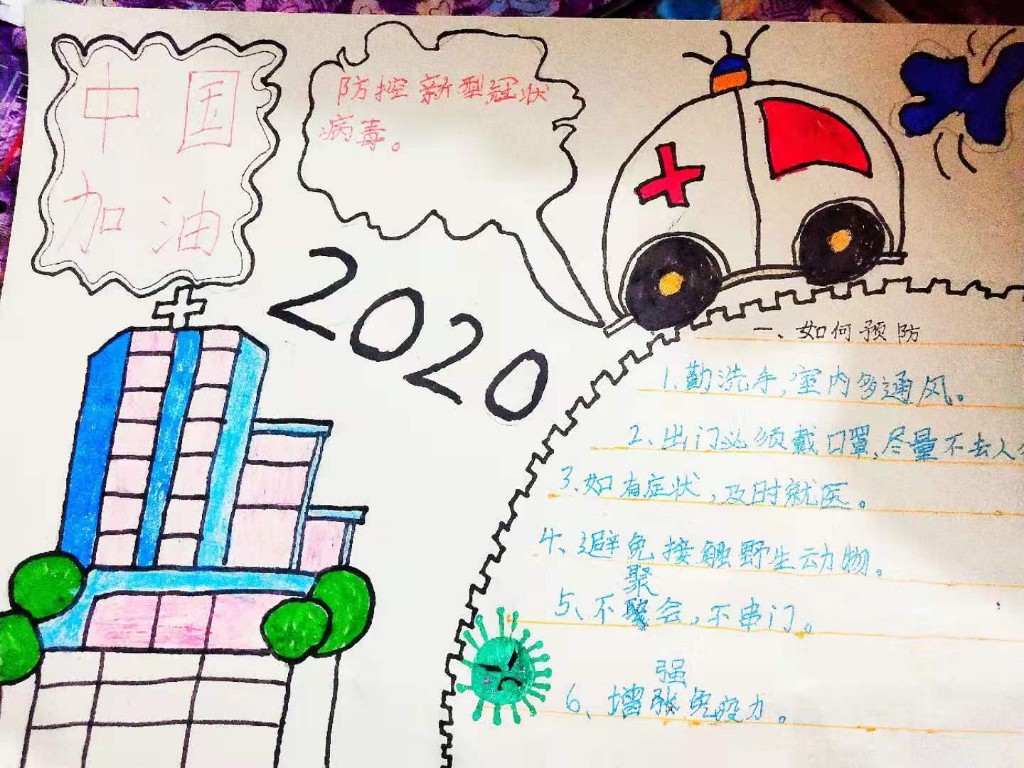 中国
加油
防控新型冠状
病毒。
2020
一、如何预防
1.勤洗手,室内多通风。
2、出门必须戴口罩,尽量不去人
3、如有症状,及时就医。
4、避免接触野生动物。
5、不聚会,不串门。
6、增强免疫力。